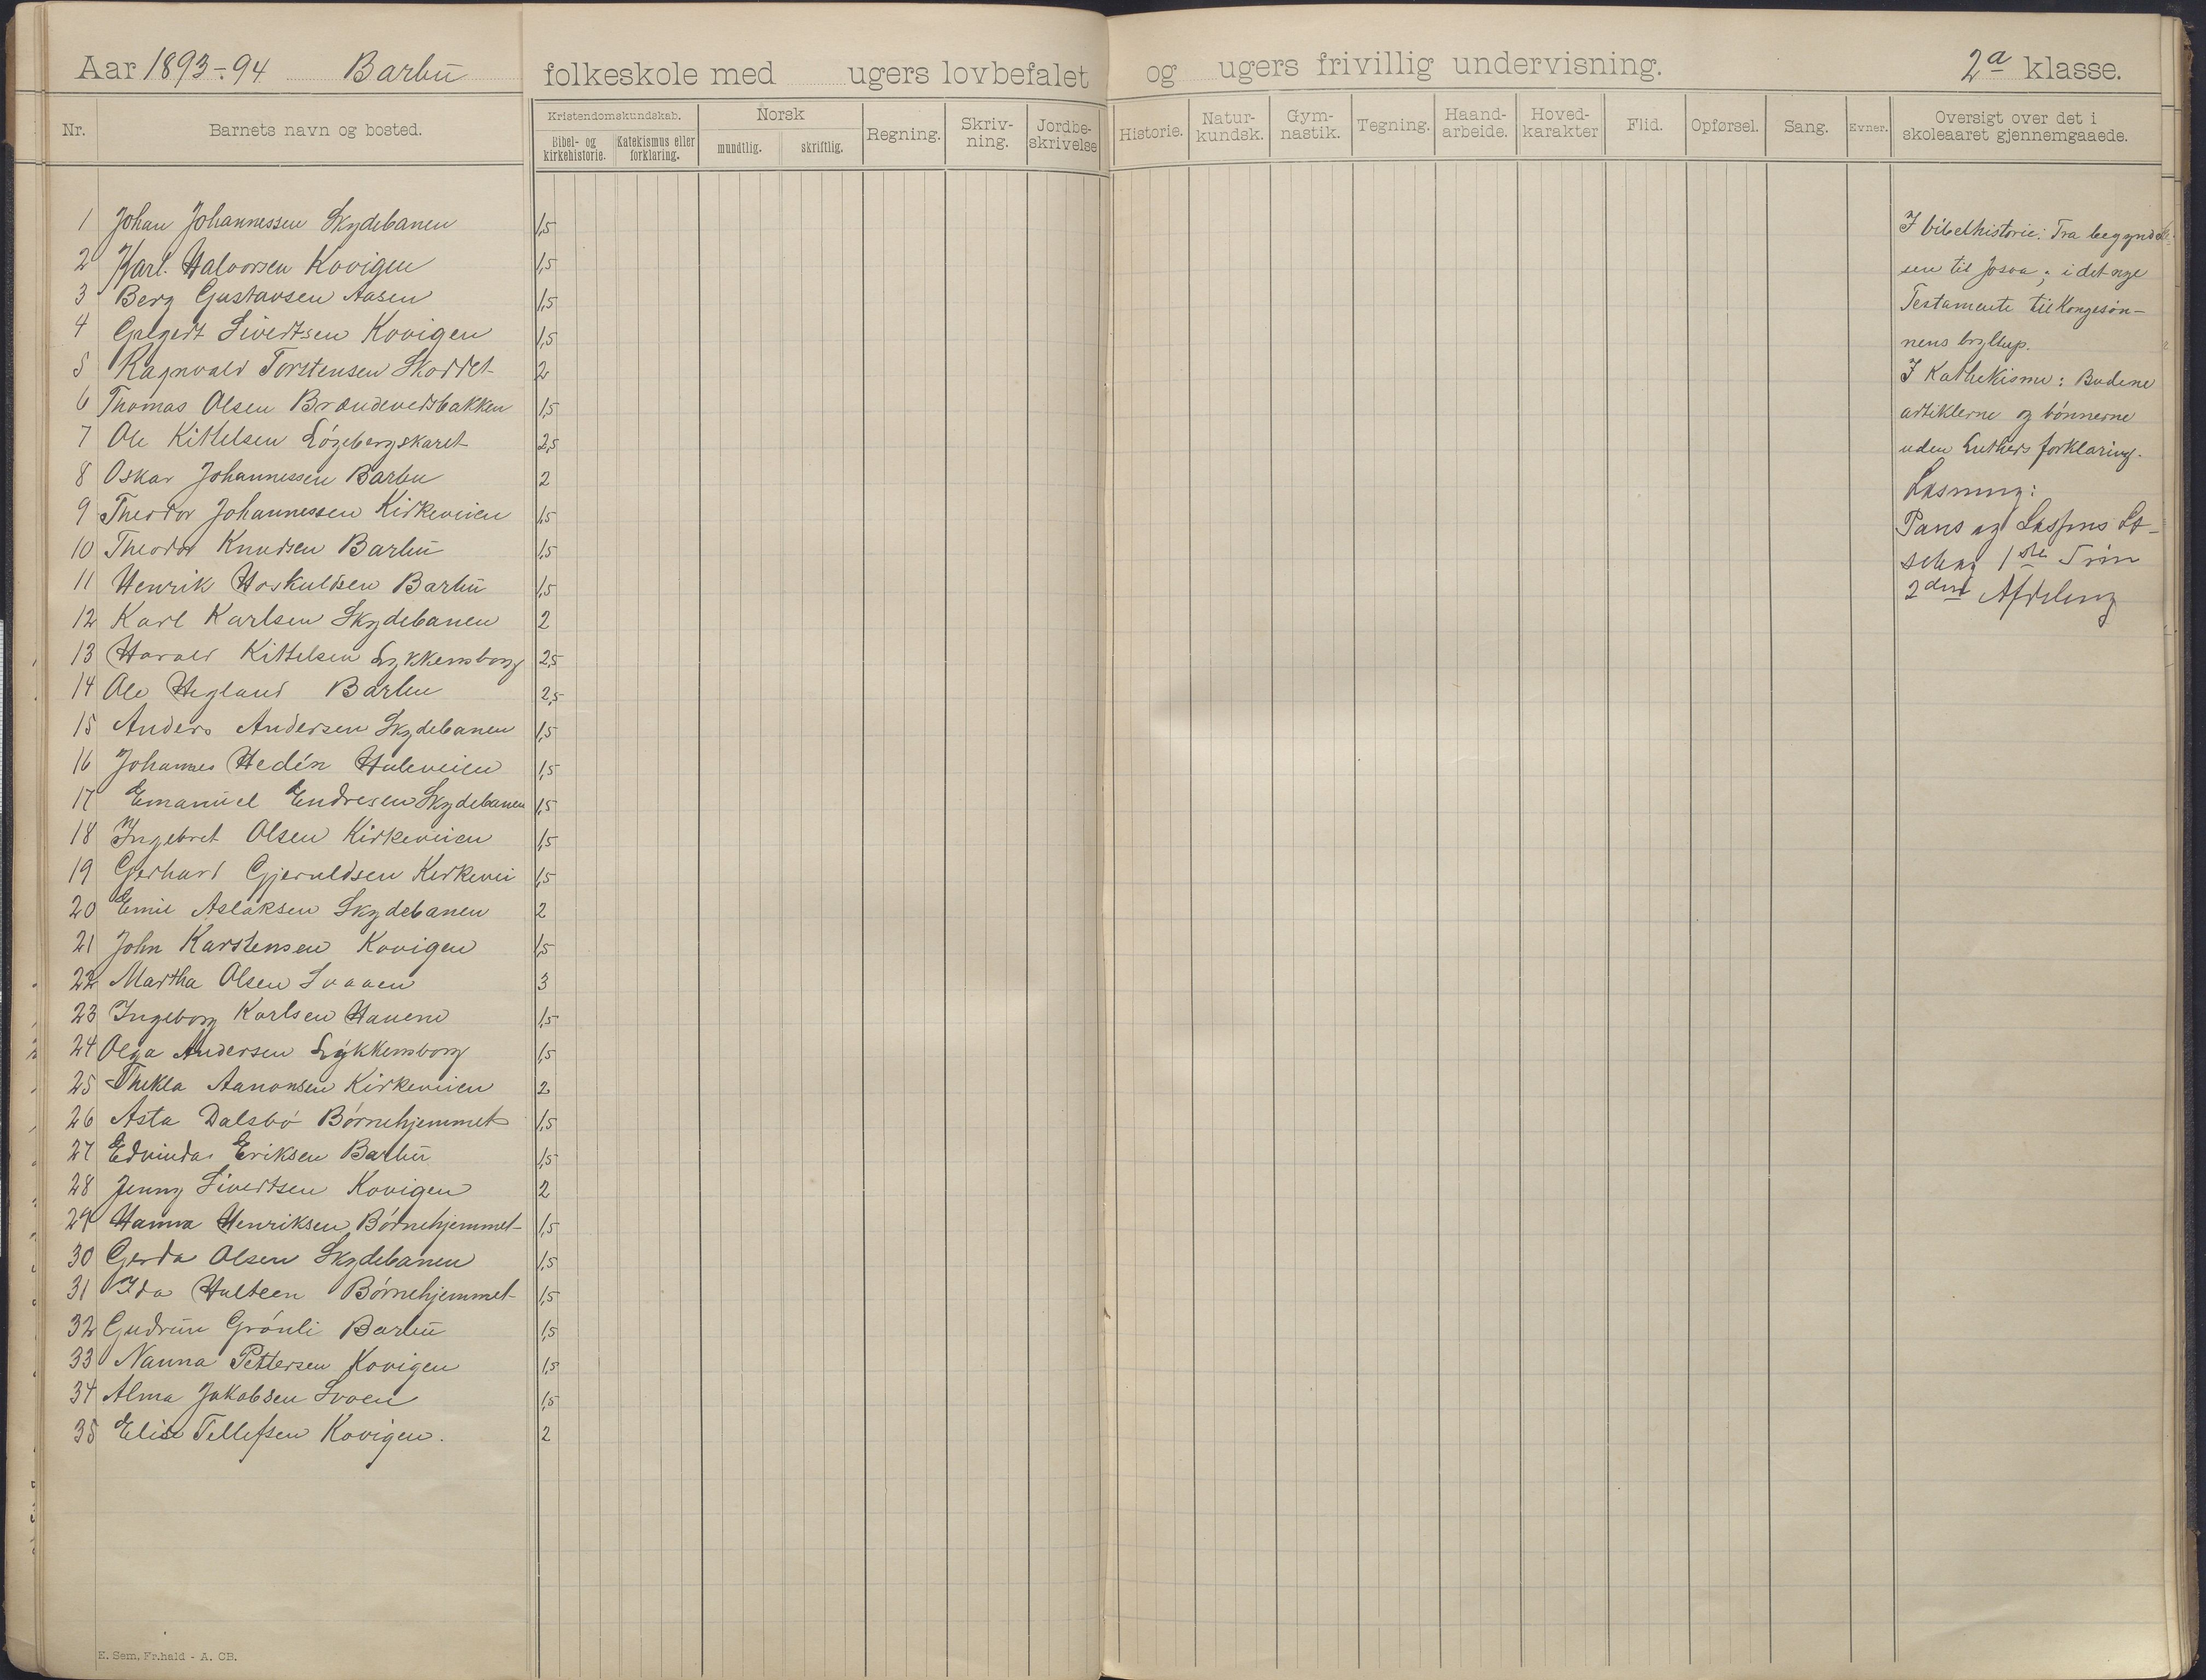 Aar 1893-94 Barbu folkeskole med ugers lovbefalet og ugers frivillig undervisning. 2a klasse.
Nr. Barnets navn og bosted. Kristendomskundskab. Bibel- og kirkehistorie. Katekismus eller forklaring. Norsk mundtlig. skriftlig. Regning. Skriv-ning. Jordbe-skrivelse Historie. Natur-kundsk. Gym-nastik. Tegning. Haand-arbeide. Hoved-karakter Flid. Opførsel. Sang. Evner. Oversigt over det i skoleaaret gjennemgaaede.
1 Johan Johannessen Skydebanen 1,5
2 Karl. Halvorsen Kovigen 1,5
3 Berg Gustavsen Aasen 1,5
4 Sivertsen Kovigen 1,5
5 Ragnvald Torstensen Skoddet 2
6 Thomas Olsen Brændevedsbakken 1,5
7 Ole Kittelsen Løgebergskaret 2,5
8 Oskar Johannessen Barbu 2
9 Theodor Johannessen Kirkeveien 1,5
10 Theodor Knudsen Barbu 1,5
11 Henrik Hoskuldsen Barbu 1,5
12 Karl Karlsen Skydebanen 2
13 Harald Kittelsen Lykkensborg 2,5
14 Ole Hegland Barbu 2,5
15 Anders Andersen Skydebanen 1,5
16 Johannes Hedén Huleveien 1,5
17 Emanuel Endresen Skydebanen 1,5
18 Ingebret Olsen Kirkeveien 1,5
19 Gerhard Gjeruldsen Kirkevei 1,5
20 Emil Aslaksen Skydebanen 2
21 John Karstensen Kovigen 1,5
22 Martha Olsen Svaaen 3
23 Ingeborg Karlsen Havene 1,5
24 Olga Andersen Lykkensborg 1,5
25 Thekla Aanonsen Kirkeveien 2
26 Asta Dalsbø Børnehjemmet 1,5
27 Edvinda Eriksen Barbu 1,5
28 Jenny Sivertsen Kovigen 2
29 Hanna Henriksen Børnehjemmet 1,5
30 Gerda Olsen Skydebanen 1,5
31 Ida Hulteen Børnehjemmet 1,5
32 Gudrun Grønli Barbu 1,5
33 Nanna Pettersen Kovigen 1,5
34 Alma Jakobsen Svoen 1,5
35 Elise Tellefsen Kovigen. 2
I bibelhistorie: Fra begyndel-
sen til Josva; i det nye
Testamente til Kongesøn-
nens bryllup.
I Kathekisme: Budene
artiklerne og bønnerne
uden Luthers forklaring.
Læsning:
Pauss og Lassens Læ-
sebog 1ste Trin
2den Afdeling
E. Sem, Fr.hald - A. CB.